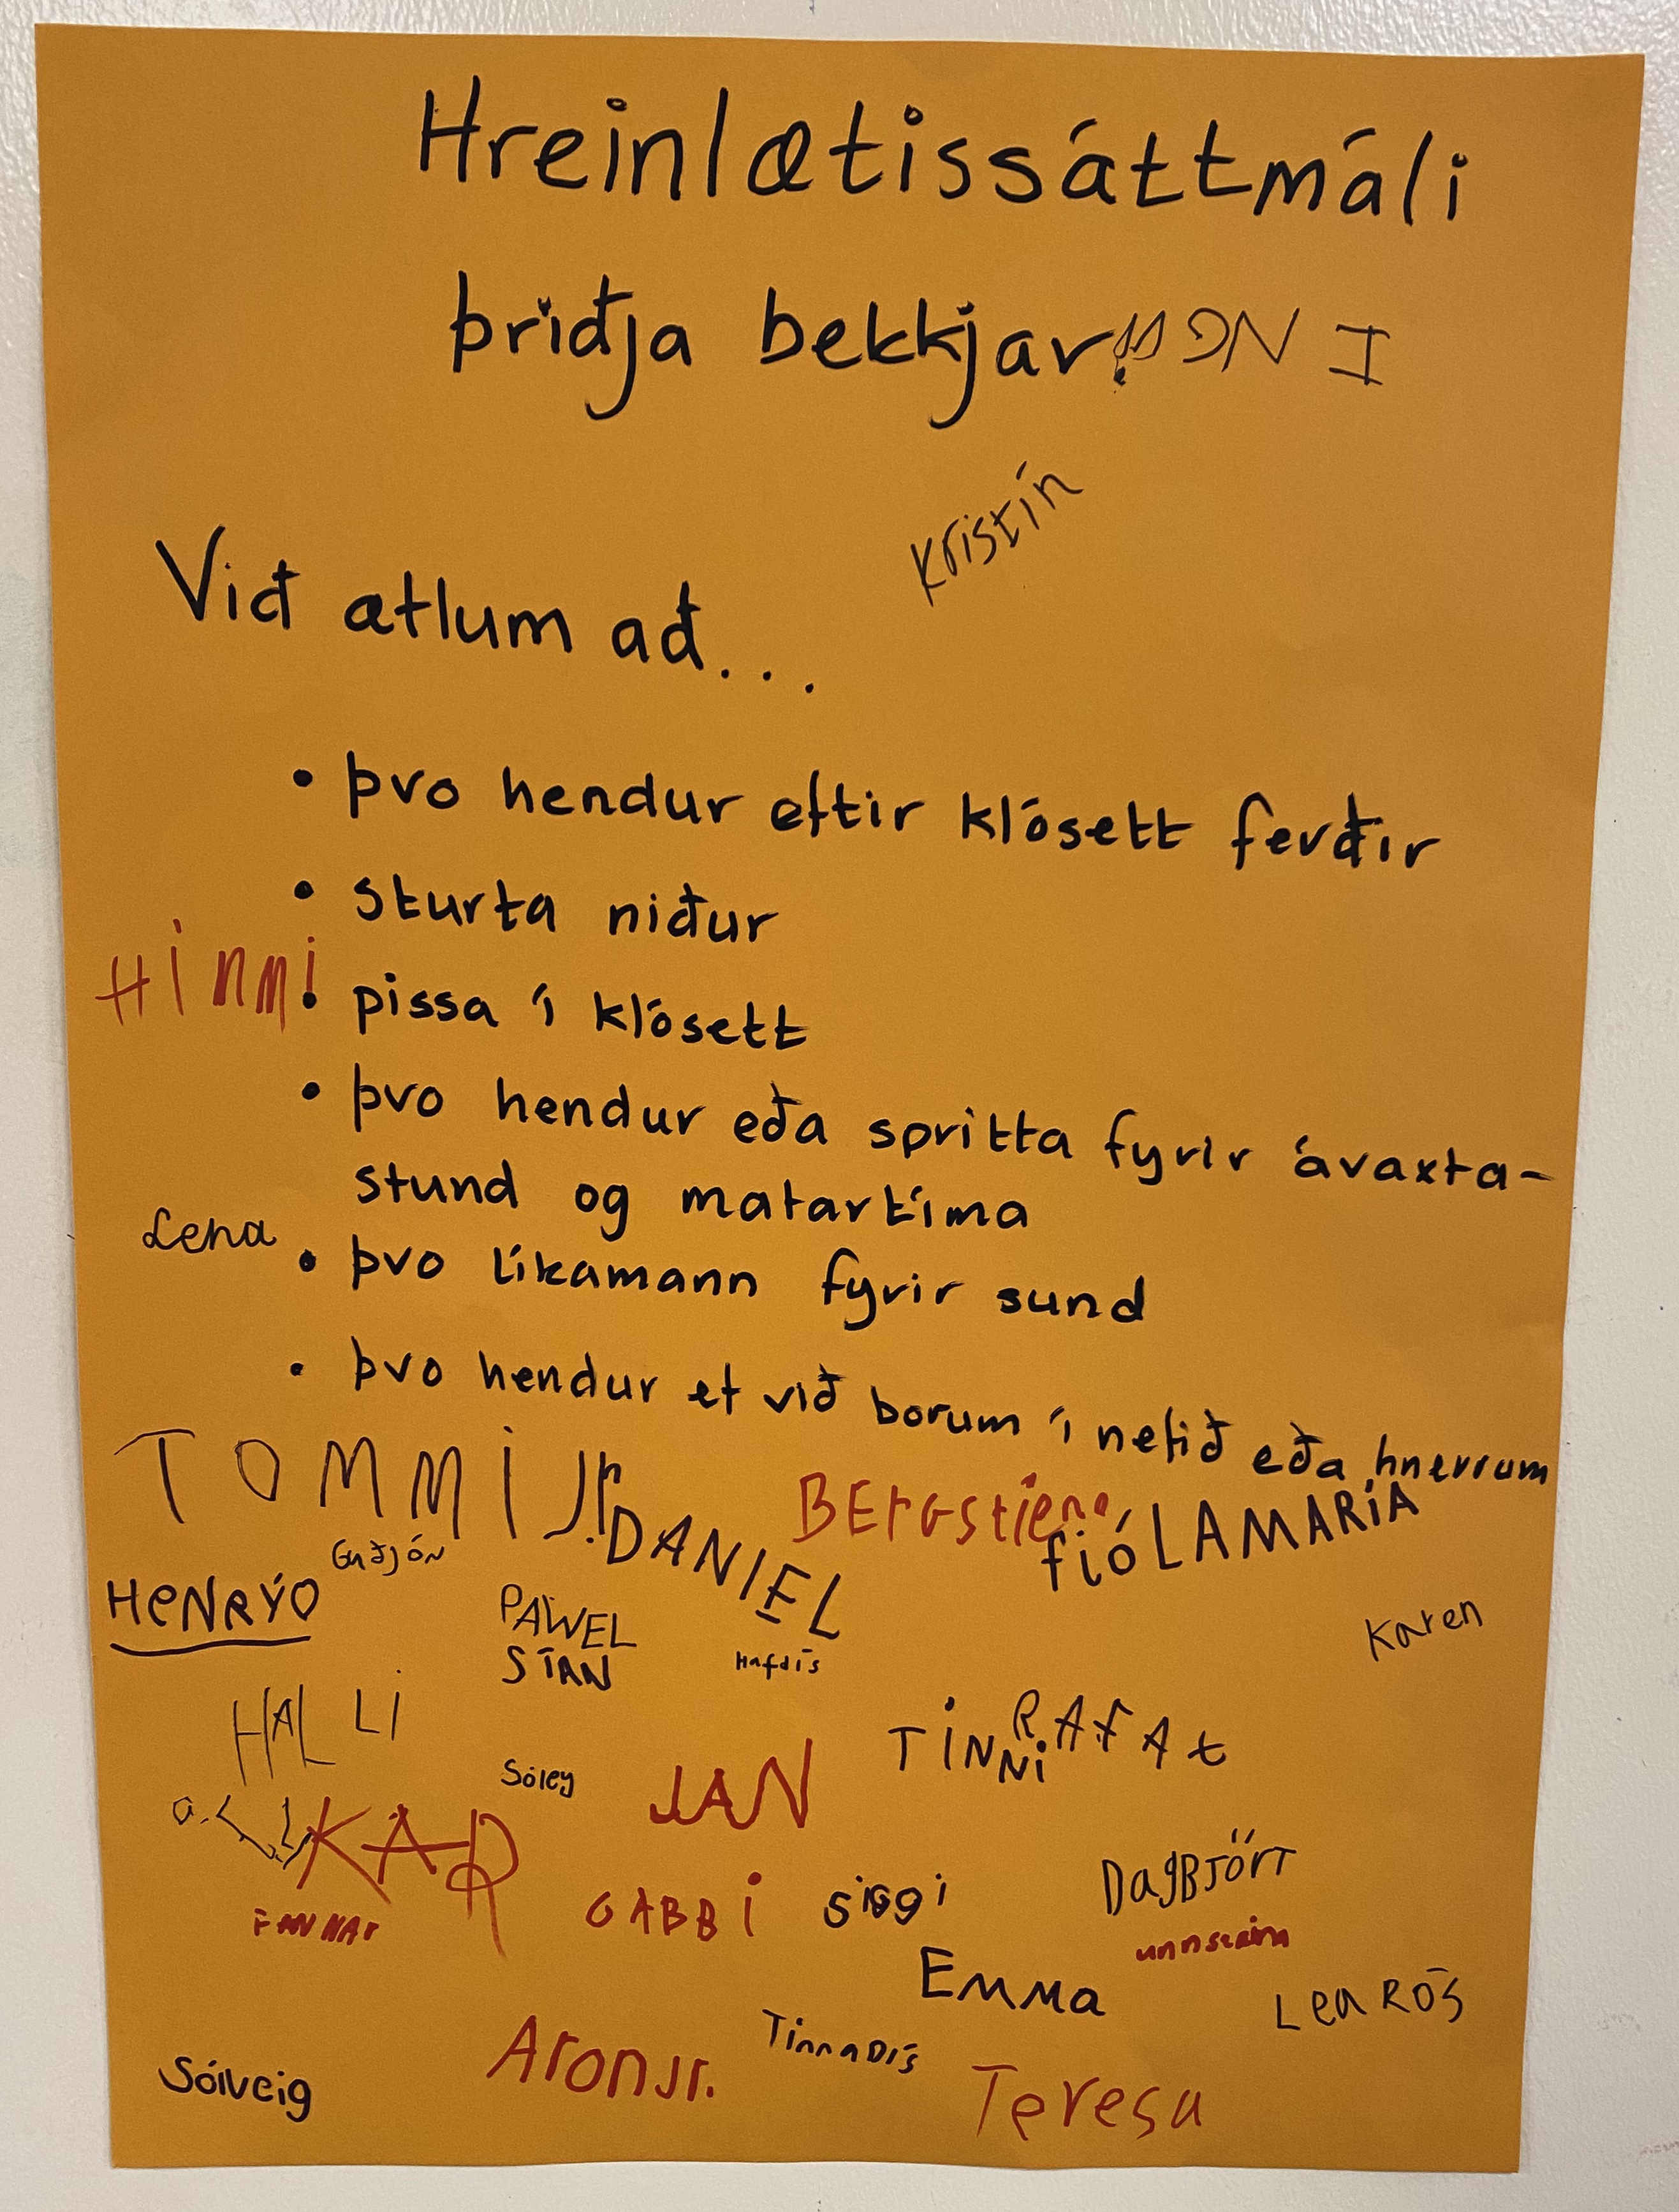 Hreinlætissáttmáli
þriðja bekkjar
Kristín
Við ætlum að...
• þvo hendur eftir klósett ferðir
• sturta niður
HINNI
• pissa í klósett
• þvo hendur eða spritta fyrir ávaxta-
stund og matartíma
Lena
• þvo líkamann fyrir sund
• þvo hendur ef við borum í nefið eða hnerrum
TOMMI Jr.
DANIEL
BErGstienn
fióLAMARíA
Guðjón
HeNRÝO
PAWEL
STAN
Hafdís
Karen
HALLI
TINNI
RAFAt
Sóley
JAN
KÁR
FANNAr
GABBI
Siggi
DagBJört
unnsteinn
EMMa
Lea RÓS
Sólveig
Aron Jr.
Tinna Dís
Teresa